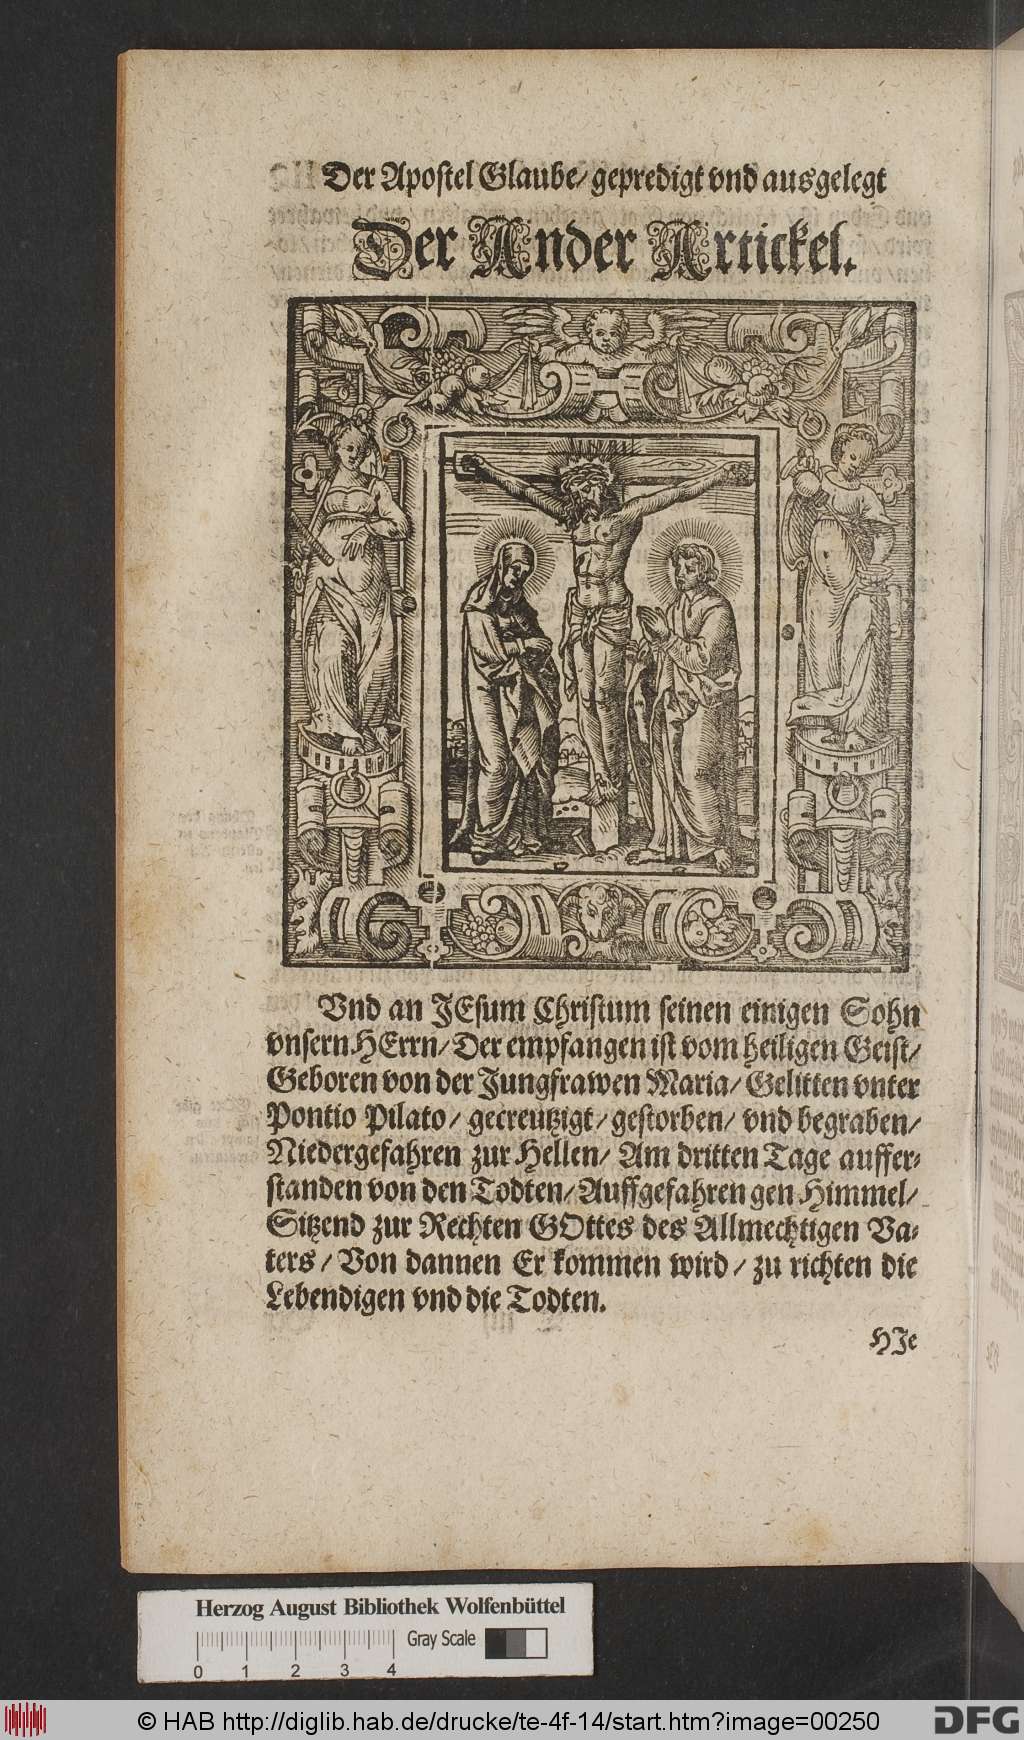 Der Apostel Glaube/ gepredigt vnd ausgelegt
Der Ander Artickel.
Vnd an JEsum Christum seinen einigen Sohn
vnsern HErrn/ Der empfangen ist vom heiligen Geist/
Geboren von der Jungfrawen Maria/ Gelitten vnter
Pontio Pilato/ gecreutzigt/ gestorben/ vnd begraben/
Niedergefahren zur Hellen/ Am dritten Tage auffer-
standen von den Todten/ Auffgefahren gen Himmel/
Sitzend zur Rechten GOttes des Allmechtigen Va-
ters/ Von dannen Er kommen wird/ zu richten die
Lebendigen vnd die Todten.
HJe
Herzog August Bibliothek Wolfenbüttel
Gray Scale
0 1 2 3 4
© HAB http://diglib.hab.de/drucke/te-4f-14/start.htm?image=00250
DFG